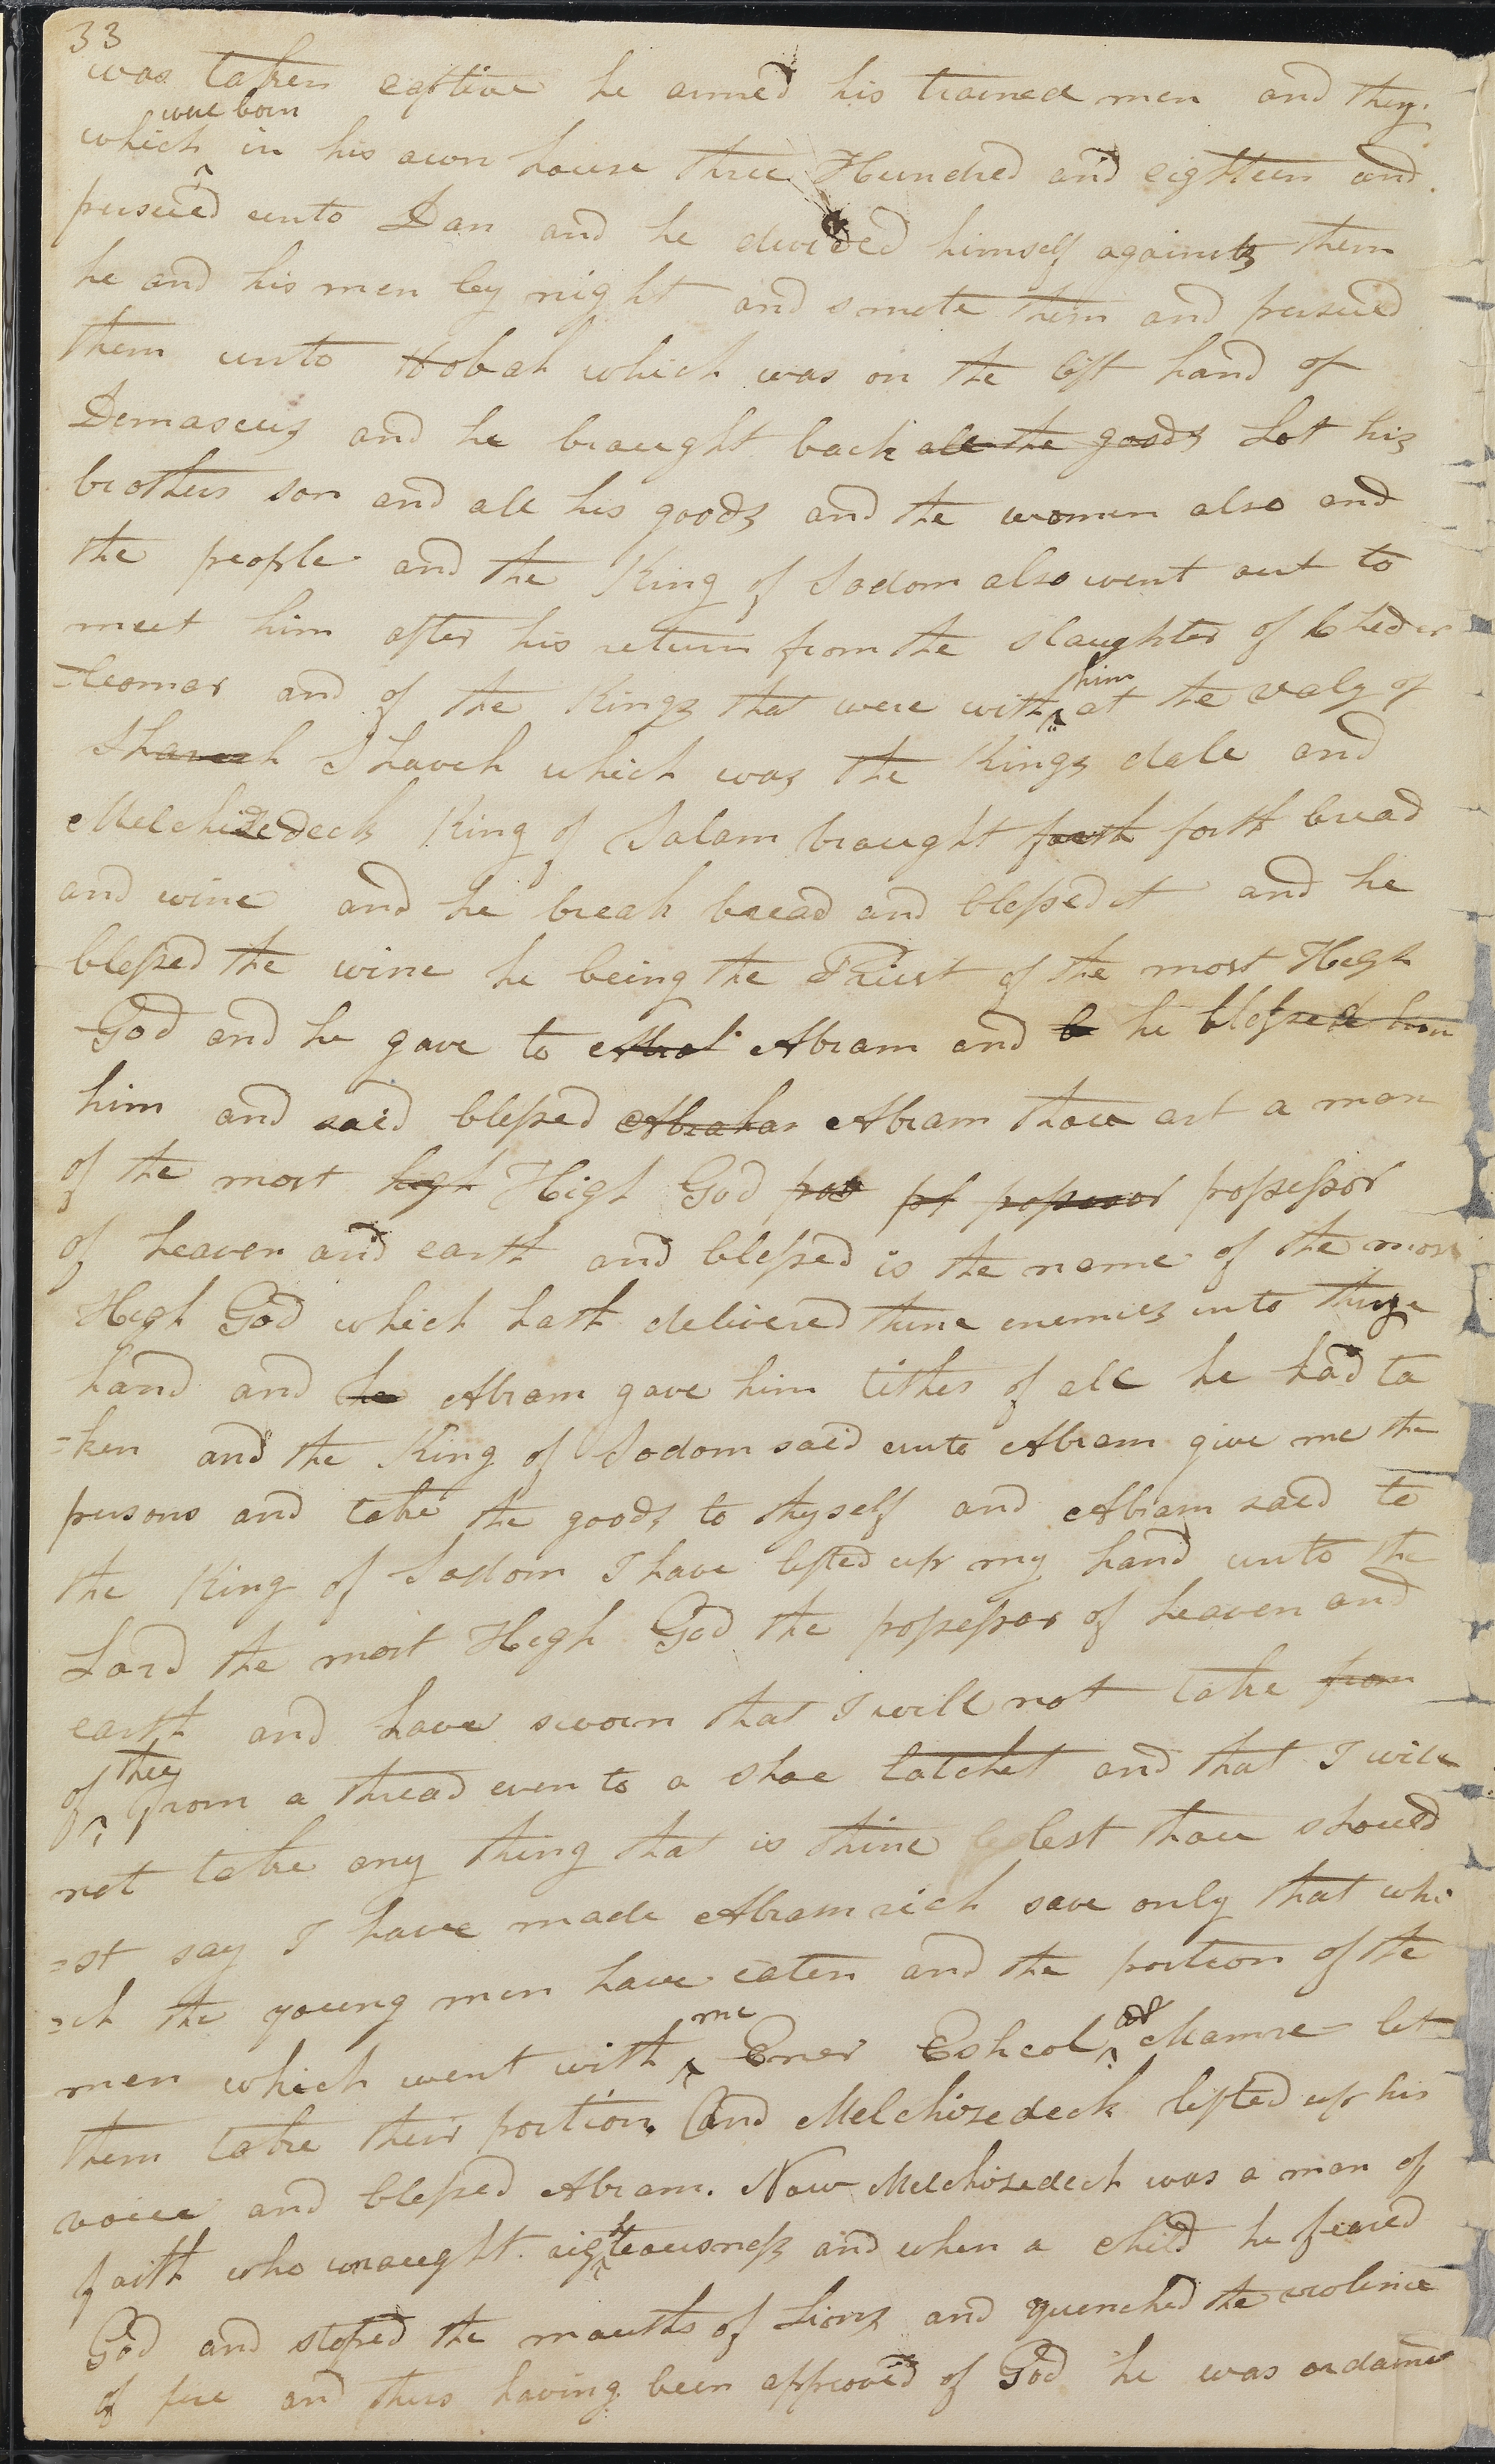 33
was taken captive he armed his trained men and they
were born
which ^ in his own house three Hundred and eighteen and
pursued unto Dan and he divided himself against them
he and his men by night and smote them and pursued
them unto Hobah which was on the left hand of
Demascus and he braught back all the goods Lot his
brothers son and all his goods and the women also and
the people and the King of Sodom also went out to
meet him after his return from the slaughter of Cheder
=leomer and of the Kings that were with ^ him at the valy of
Shaveh Shaveh which was the Kings dale and
Melchizedeck King of Salam braught forth forth bread
and wine and he break bread and blessed it and he
blessed the wine he being the Priest of the most High
God and he gave to Abram and b he blessed him
him and said blessed Abraham Abram thou art a man
of the most high High God pos ps possessor possessor
of heaven and earth and blessed is the name of the most
High God which hath delivered thine enemies into thine
hand and he Abram gave him tithes of all he had ta
=ken and the King of Sodom said unto Abram give me the
persons and take the goods to thyself and Abram said to
the King of Sodom I have lifted up my hand unto the
Lord the most High God the possessor of heaven and
earth and have sworn that I will not take from
of ^ thee from a thread even to a shoe latchet and that I will
not take any thing that is thine lest thou should
=st say I have made Abram rich save only that whi
=ch the young men have eaten and the portion of the
men which went with ^ me Ener Eshcol ^ and Mamre let
them take their portion. And Melchizedeck lifted up his
voice and blessed Abram. Now Melchizedeck was a man of
faith who wraught righteousness and when a child he feared
God and stoped the mouths of Lions and quenched the violence
of fire and thus having been approved of God he was ordained